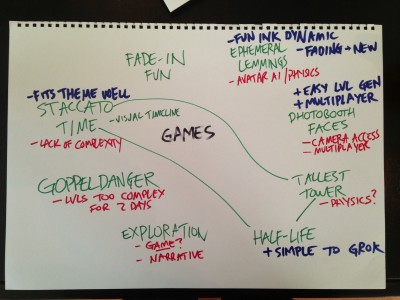 FADE-IN
FUN
-FUN INK DYNAMIC
EPHEMERAL
LEMMINGS
- FADING → NEW
- AVATAR AI / PHYSICS
- FITS THEME WELL
STACCATO
TIME
- VISUAL TIMELINE
- LACK OF COMPLEXITY
GAMES
+ EASY LVL GEN
+ MULTIPLAYER
PHOTOBOOTH
FACES
- CAMERA ACCESS
- MULTIPLAYER
GOPPELDANGER
- LVLS TOO COMPLEX
FOR 2 DAYS
TALLEST
TOWER
- PHYSICS?
EXPLORATION
- GAME?
- NARRATIVE
HALF-LIFE
+ SIMPLE TO GROK